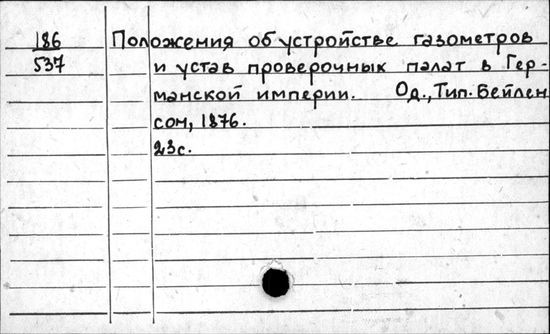 186 Положения об устройстве газометров
537 и устав проверочных палат в Гер-
манской империи. Од., Тип. Бейлен
сон, 1876.
23с.